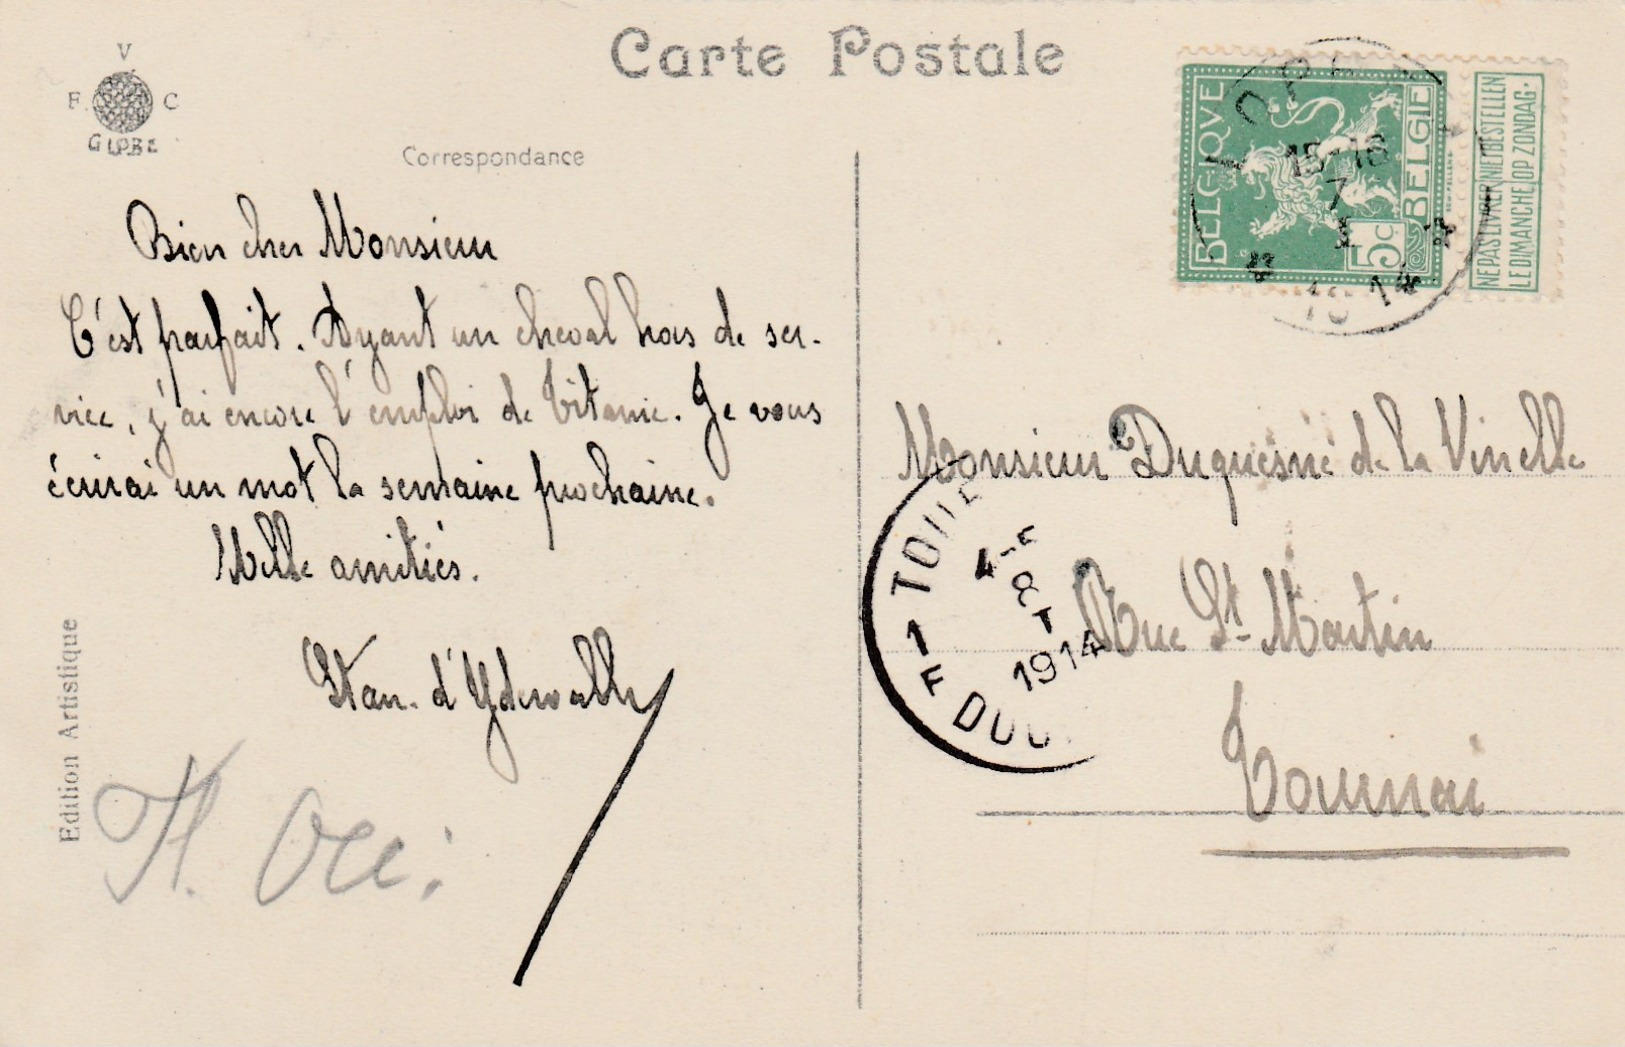 Carte Postale
V
F. C
GLOBE
Correspondance
BELGIQVE
BELGIE
5c
NE PAS LIVRER NIET BESTELLEN
LE DIMANCHE OP ZONDAG.
LOPH
15-16
7
X
1914
Bien cher Monsieur
C'est parfait. Ayant un cheval hors de ser-
vice, j'ai encore l'emploi de Titanic. Je vous
écrirai un mot la semaine prochaine.
Mille amitiés.
Stan. d'Ydewalle
Monsieur Duquesne de la Vinelle
Rue St- Martin
Tournai
1
4-5
8
1914
F DOO
Edition Artistique